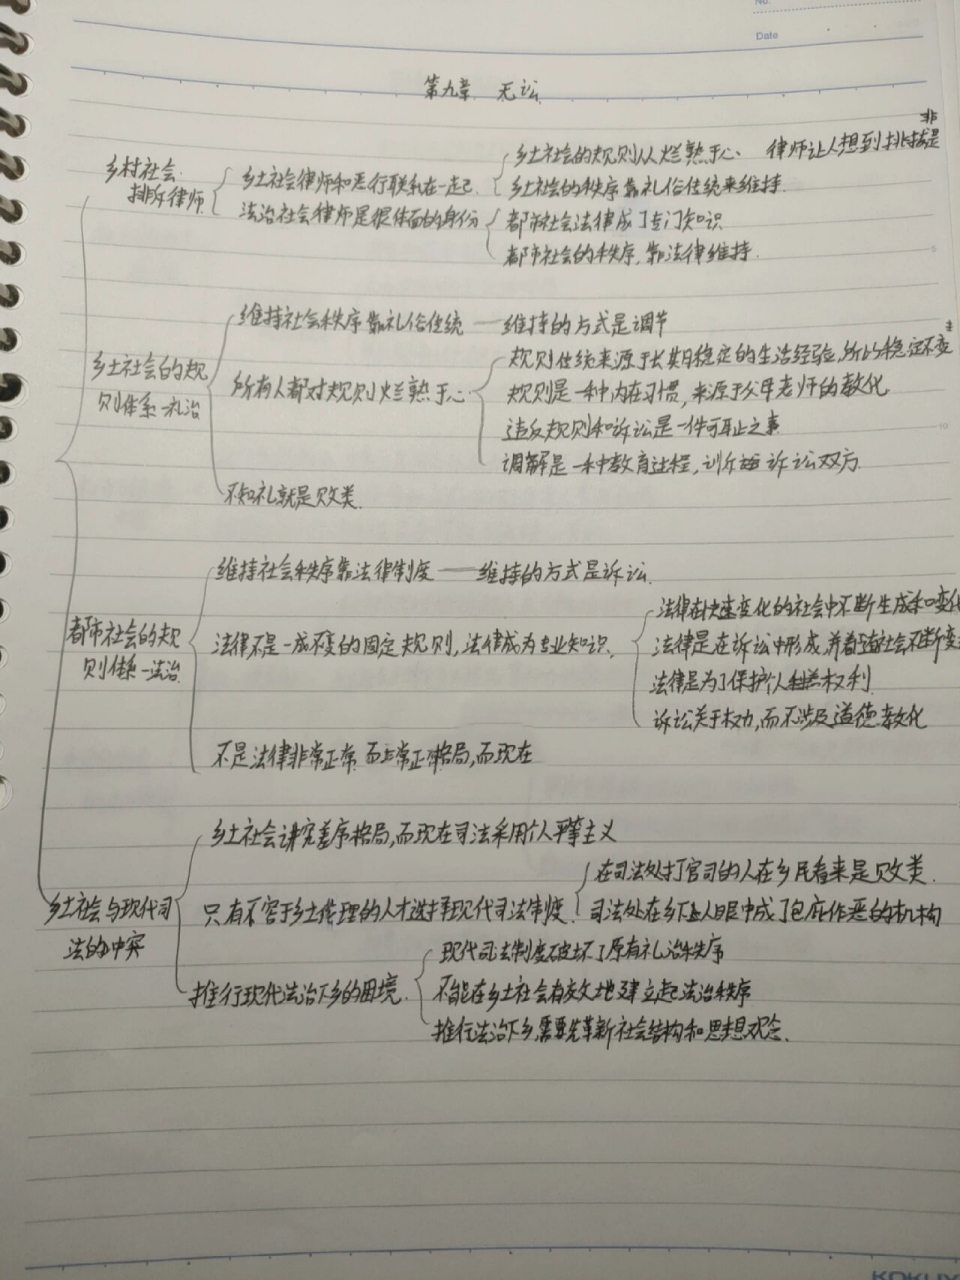 No.
Date
第九章 无讼
乡村社会排斥律师
乡土社会律师和恶行联系在一起
乡土社会的规则人烂熟于心 律师让人想到挑拨是非
乡土社会的秩序靠礼俗传统来维持
法治社会律师是很体面的身份
都市社会法律成了专门知识
都市社会的秩序,靠法律维持
乡土社会的规则体系—礼治
维持社会秩序靠礼俗传统——维持的方式是调节
所有人都对规则烂熟于心
规则传统来源于长期稳定的生活经验,所以稳定不变
规则是一种内在习惯,来源于父母老师的教化
违反规则和诉讼是一件可耻之事
调解是一种教育过程,训斥 诉讼双方
不知礼就是败类
都市社会的规则体系—法治
维持社会秩序靠法律制度——维持的方式是诉讼
法律不是一成不变的固定规则,法律成为专业知识
法律在快速变化的社会中不断生成和变化
法律是在诉讼中形成,并 社会不断变
法律是为了保护个人 权利
诉讼关于权力,而不涉及道德教化
不是法律非常正常 而 正常格局,而现在
乡土社会与现代司法的冲突
乡土社会讲究差序格局,而现在司法采用个人平等主义
只有不容于乡土伦理的人才选择现代司法制度
在司法处打官司的人在乡民看来是败类
司法处在乡下人眼中成了包庇作恶的机构
推行现代法治下乡的困境
现代司法制度破坏了原有礼治秩序
不能在乡土社会有效地建立起法治秩序
推行法治下乡,需要先革新社会结构和思想观念